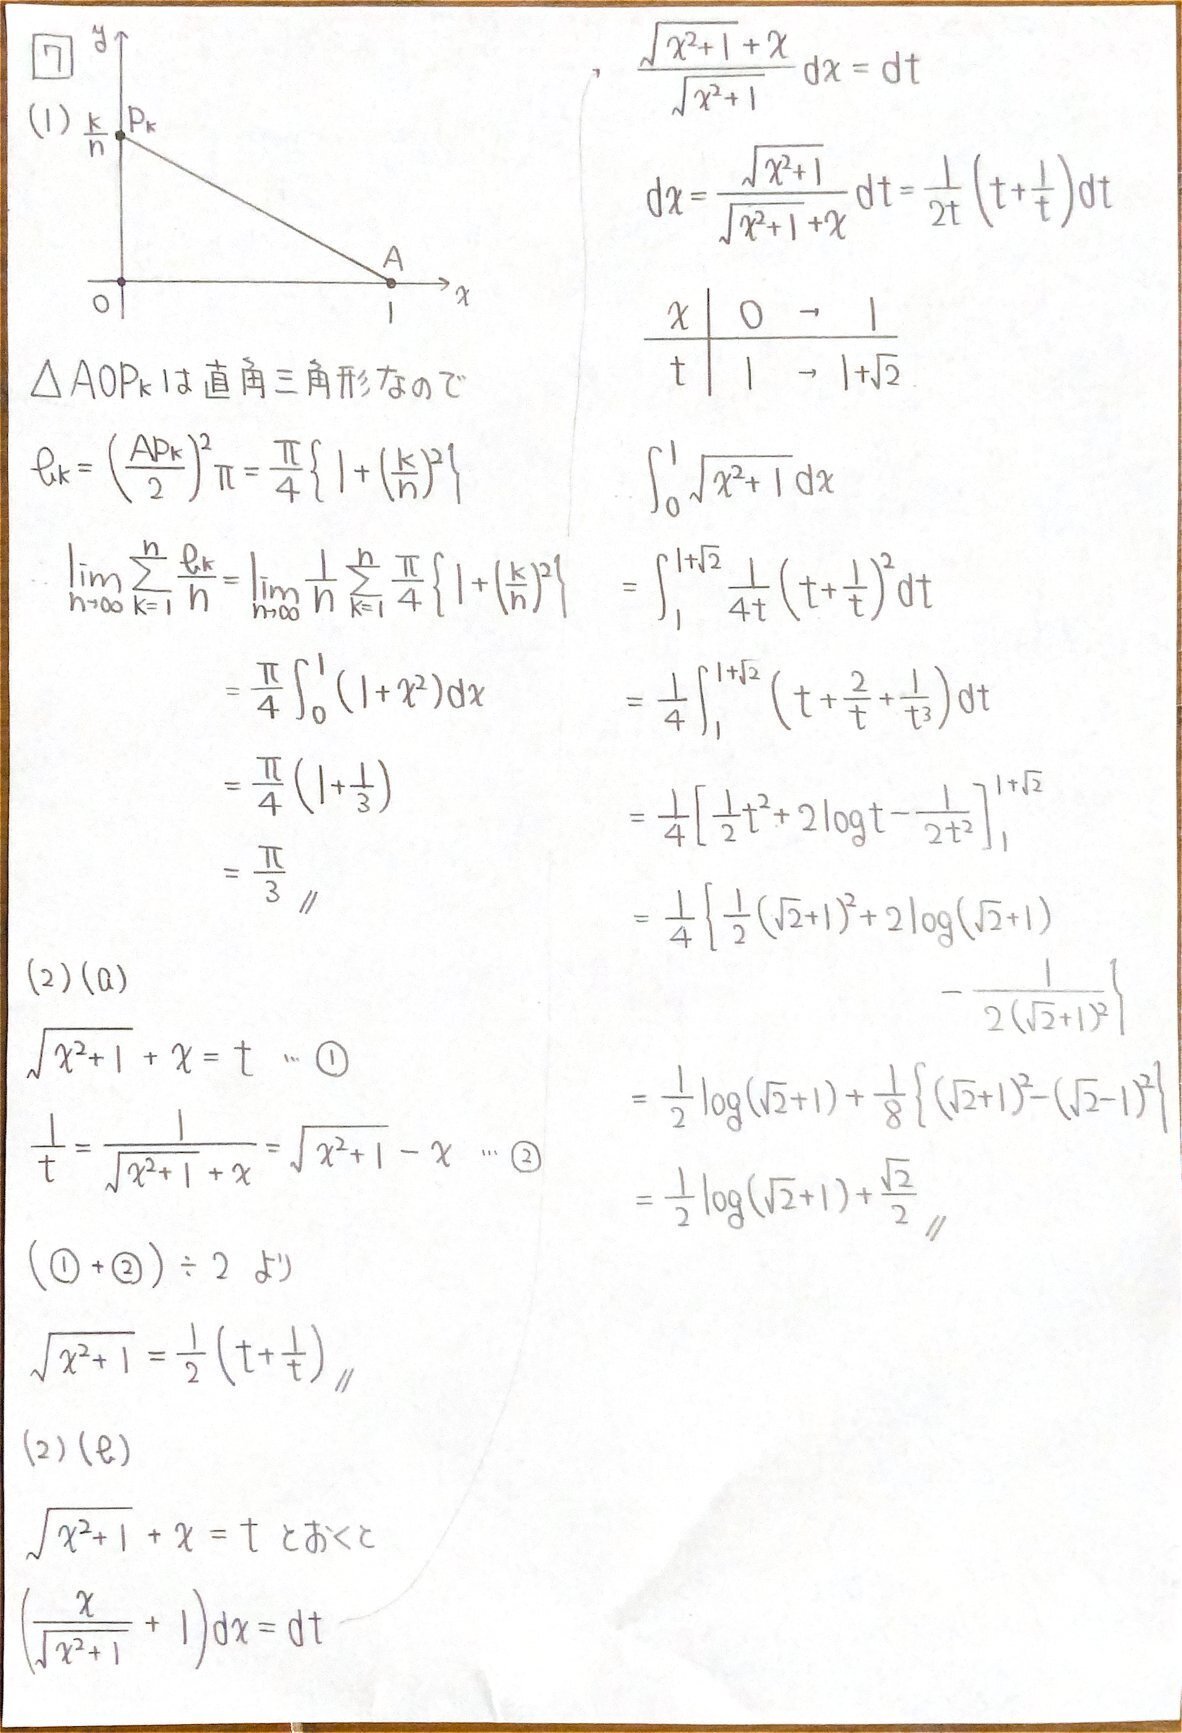 7
(1)
y
k/n
Pₖ
A
O
1
x
△AOPₖは直角三角形なので
bₖ = (APₖ/2)²π = π/4{1+(k/n)²}
lim_{n→∞} Σ_{k=1}^{n} bₖ/n = lim_{n→∞} 1/n Σ_{k=1}^{n} π/4{1+(k/n)²}
= π/4 ∫₀¹ (1+x²)dx
= π/4 (1+1/3)
= π/3 //
(2)(a)
√(x²+1) + x = t … ①
1/t = 1/(√(x²+1) + x) = √(x²+1) - x … ②
(①+②) ÷ 2 より
√(x²+1) = 1/2 (t+1/t) //
(2)(b)
√(x²+1) + x = t とおくと
(x/√(x²+1) + 1)dx = dt
(√(x²+1) + x)/√(x²+1) dx = dt
dx = √(x²+1)/(√(x²+1)+x) dt = 1/2t (t+1/t)dt
x | 0 → 1
t | 1 → 1+√2
∫₀¹ √(x²+1) dx
= ∫₁^{1+√2} 1/4t (t+1/t)² dt
= 1/4 ∫₁^{1+√2} (t + 2/t + 1/t³) dt
= 1/4 [1/2 t² + 2logt - 1/2t²]₁^{1+√2}
= 1/4 {1/2 (√2+1)² + 2log(√2+1)
- 1/2(√2+1)²}
= 1/2 log(√2+1) + 1/8 {(√2+1)² - (√2-1)²}
= 1/2 log(√2+1) + √2/2 //